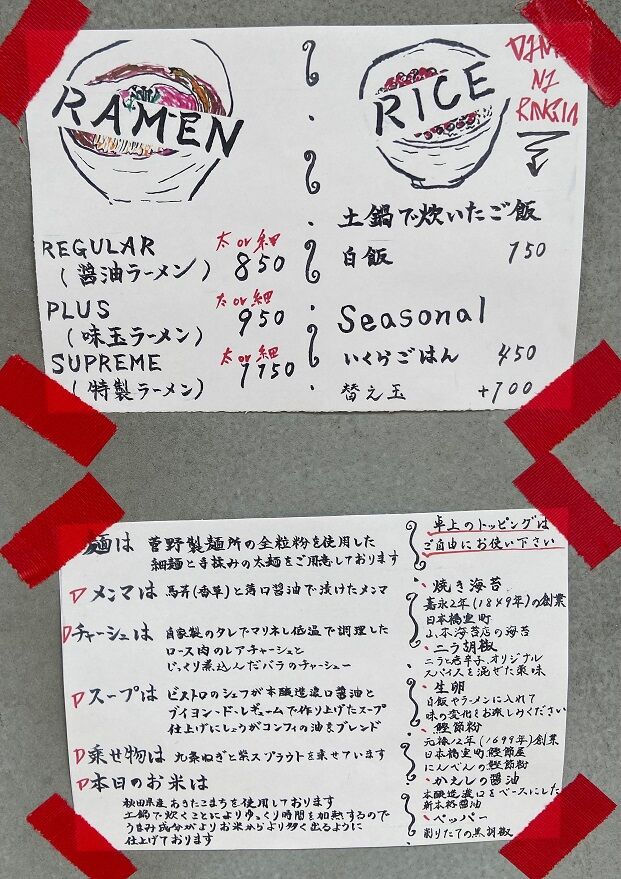 RAMEN
REGULAR 太 or 細
(醤油ラーメン) 850
PLUS 太 or 細
(味玉ラーメン) 950
SUPREME 太 or 細
(特製ラーメン) 1150
RICE
土鍋で炊いたご飯
白飯 150
Seasonal
いくらごはん 450
替え玉 +100
麺は 菅野製麺所の全粒粉を使用した
細麺と手揉みの太麺をご用意しております
メンマは 馬芹(香草)と薄口醤油で漬けたメンマ
チャーシュは 自家製のタレでマリネし低温で調理した
ロース肉のレアチャーシュと
じっくり煮込んだバラのチャーシュー
スープは ビストロのシェフが本醸造濃口醤油と
ブイヨン・ド・レギュームで作り上げたスープ
仕上げにしょうがコンフィの油をブレンド
乗せ物は 九条ねぎと紫スプラウトを乗せています
本日のお米は
秋田県産あきたこまちを使用しております
土鍋で炊くことによりゆっくり時間を加熱するので
うまみ成分がよりお米からより多く出るように
仕上げております
卓上のトッピングは
ご自由にお使い下さい
焼き海苔
嘉永2年(1849年)の創業
日本橋室町
山本海苔店の海苔
ニラ胡椒
ニラと唐辛子、オリジナル
スパイスを混ぜた薬味
生卵
白飯やラーメンに入れて
味の変化をお楽しみください
鰹節粉
元禄12年(1699年)創業
日本橋室町鰹節屋
にんべんの鰹節粉
かえしの醤油
本醸造濃口をベースにした
新本格醤油
ペッパー
削りたての黒胡椒